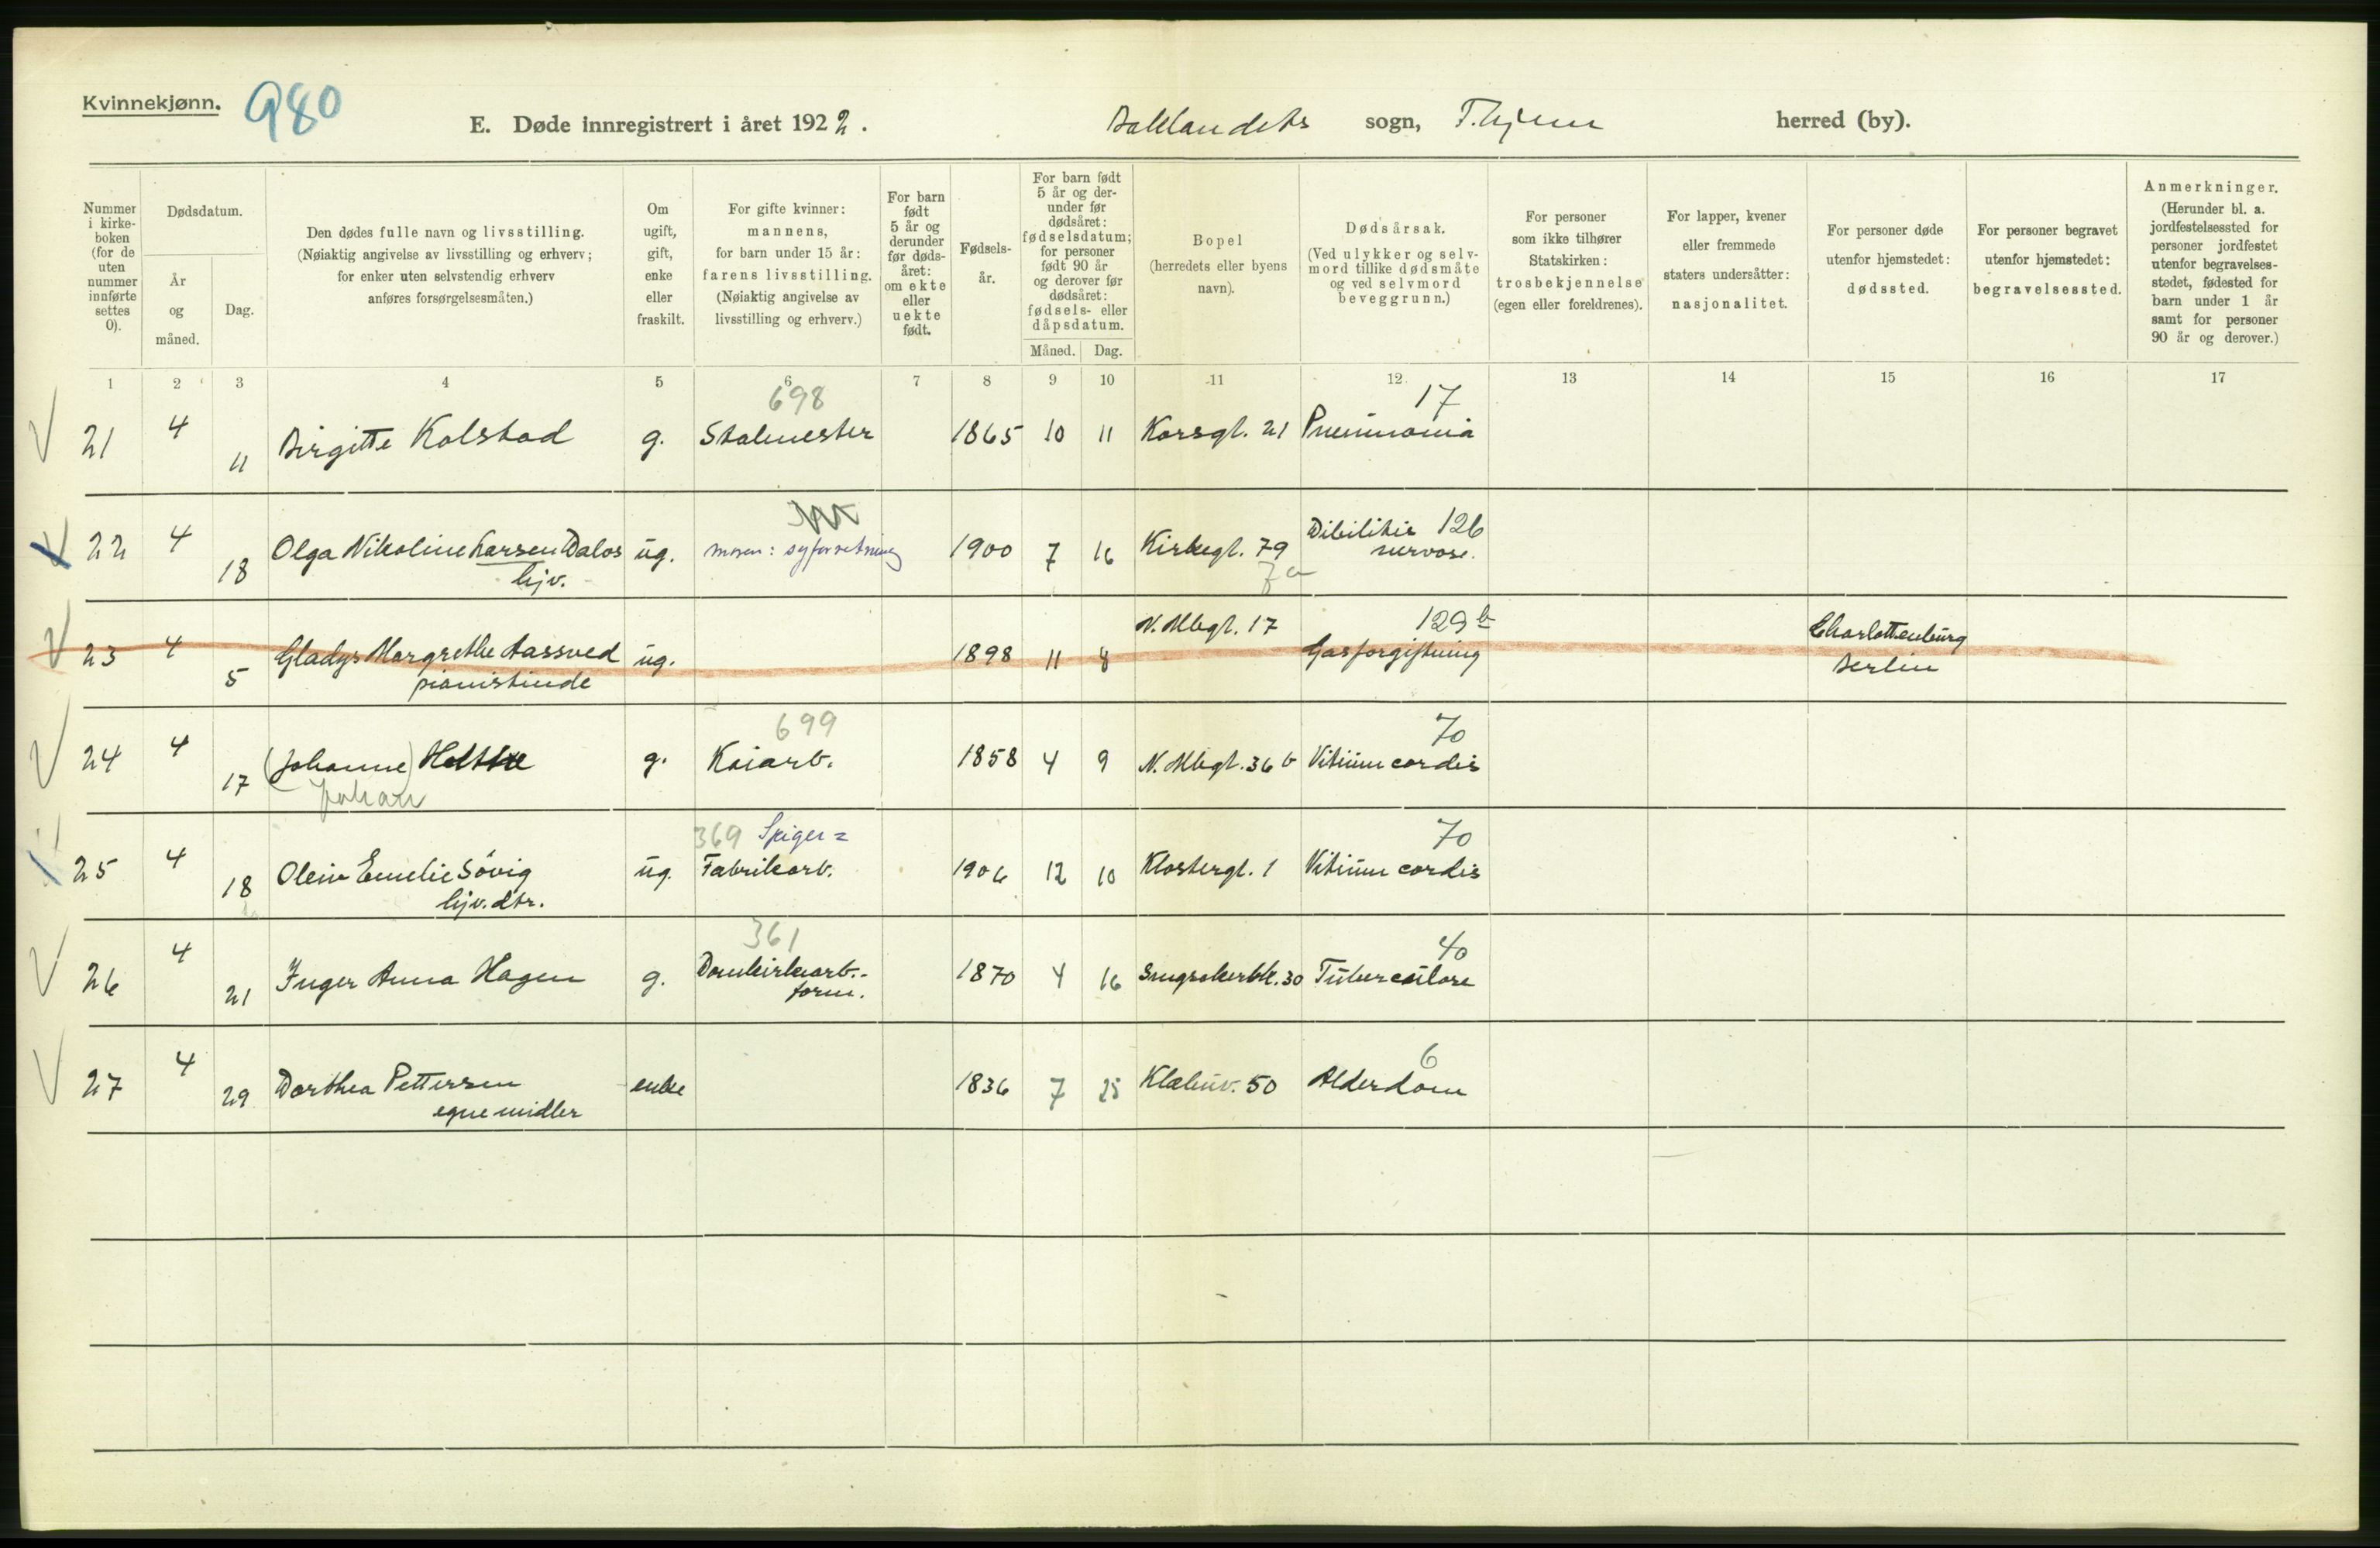 Kvinnekjønn.
980
E. Døde innregistrert i året 1922. Baklandets sogn, T.hjem herred (by).
Nummer i kirkeboken (for de uten nummer innførte settes 0).
Dødsdatum.
År og måned.
Dag.
Den dødes fulle navn og livsstilling.
(Nøiaktig angivelse av livsstilling og erhverv;
for enker uten selvstendig erhverv
anføres forsørgelsesmåten.)
Om ugift, gift, enke eller fraskilt.
For gifte kvinner:
mannens,
for barn under 15 år:
farens livsstilling.
(Nøiaktig angivelse av
livsstilling og erhverv.)
For barn født 5 år og derunder før dødsåret: om ekte eller uekte født.
Fødselsår.
For barn født 5 år og derunder før dødsåret: fødselsdatum; for personer født 90 år og derover før dødsåret: fødsels- eller dåpsdatum.
Måned. Dag.
Bopel
(herredets eller byens
navn).
Dødsårsak.
(Ved ulykker og selvmord tillike dødsmåte og ved selvmord beveggrunn.)
For personer
som ikke tilhører
Statskirken:
trosbekjennelse
(egen eller foreldrenes).
For lapper, kvener
eller fremmede
staters undersåtter:
nasjonalitet.
For personer døde
utenfor hjemstedet:
dødssted.
For personer begravet
utenfor hjemstedet:
begravelsessted.
Anmerkninger.
(Herunder bl. a. jordfestelsessted for personer jordfestet utenfor begravelsesstedet, fødested for barn under 1 år samt for personer 90 år og derover.)
1 2 3 4 5 6 7 8 9 10 11 12 13 14 15 16 17
698 17
21 4 11 Birgitte Kolstad g. Stalmester 1865 10 11 Korsgt. 21 Pneumonia
22 4 18 Olga Nikoline Larsen Dalos ug. moren: syforretning 1900 7 16 Kirkegt. 79 Dibilitis 126
hjv. 7a nervose.
23 4 5 Gladys Margrethe Aassved ug. 1898 11 8 N. Mbgt. 17 129b Gasforgiftning Charlottenburg
pianistinde Berlin
699 70
24 4 17 (Johanne) g. Kaiarb. 1858 4 9 N. Mbgt. 36 b Vitium cordis
Johan
369 Spiger= 70
25 4 18 Oleiv Emelie Sövig ug. Fabrikarb. 1906 12 10 Klostergt. 1 Vitium cordis
hjv. dtr.
361 40
26 4 21 Inger Anna Hagen g. Domkirkearb.- 1870 4 16 30 Tuberculose
form.
6
27 4 29 Dorthea Pettersen enke 1836 7 25 Klæbuv. 50 Alderdom
egne midler